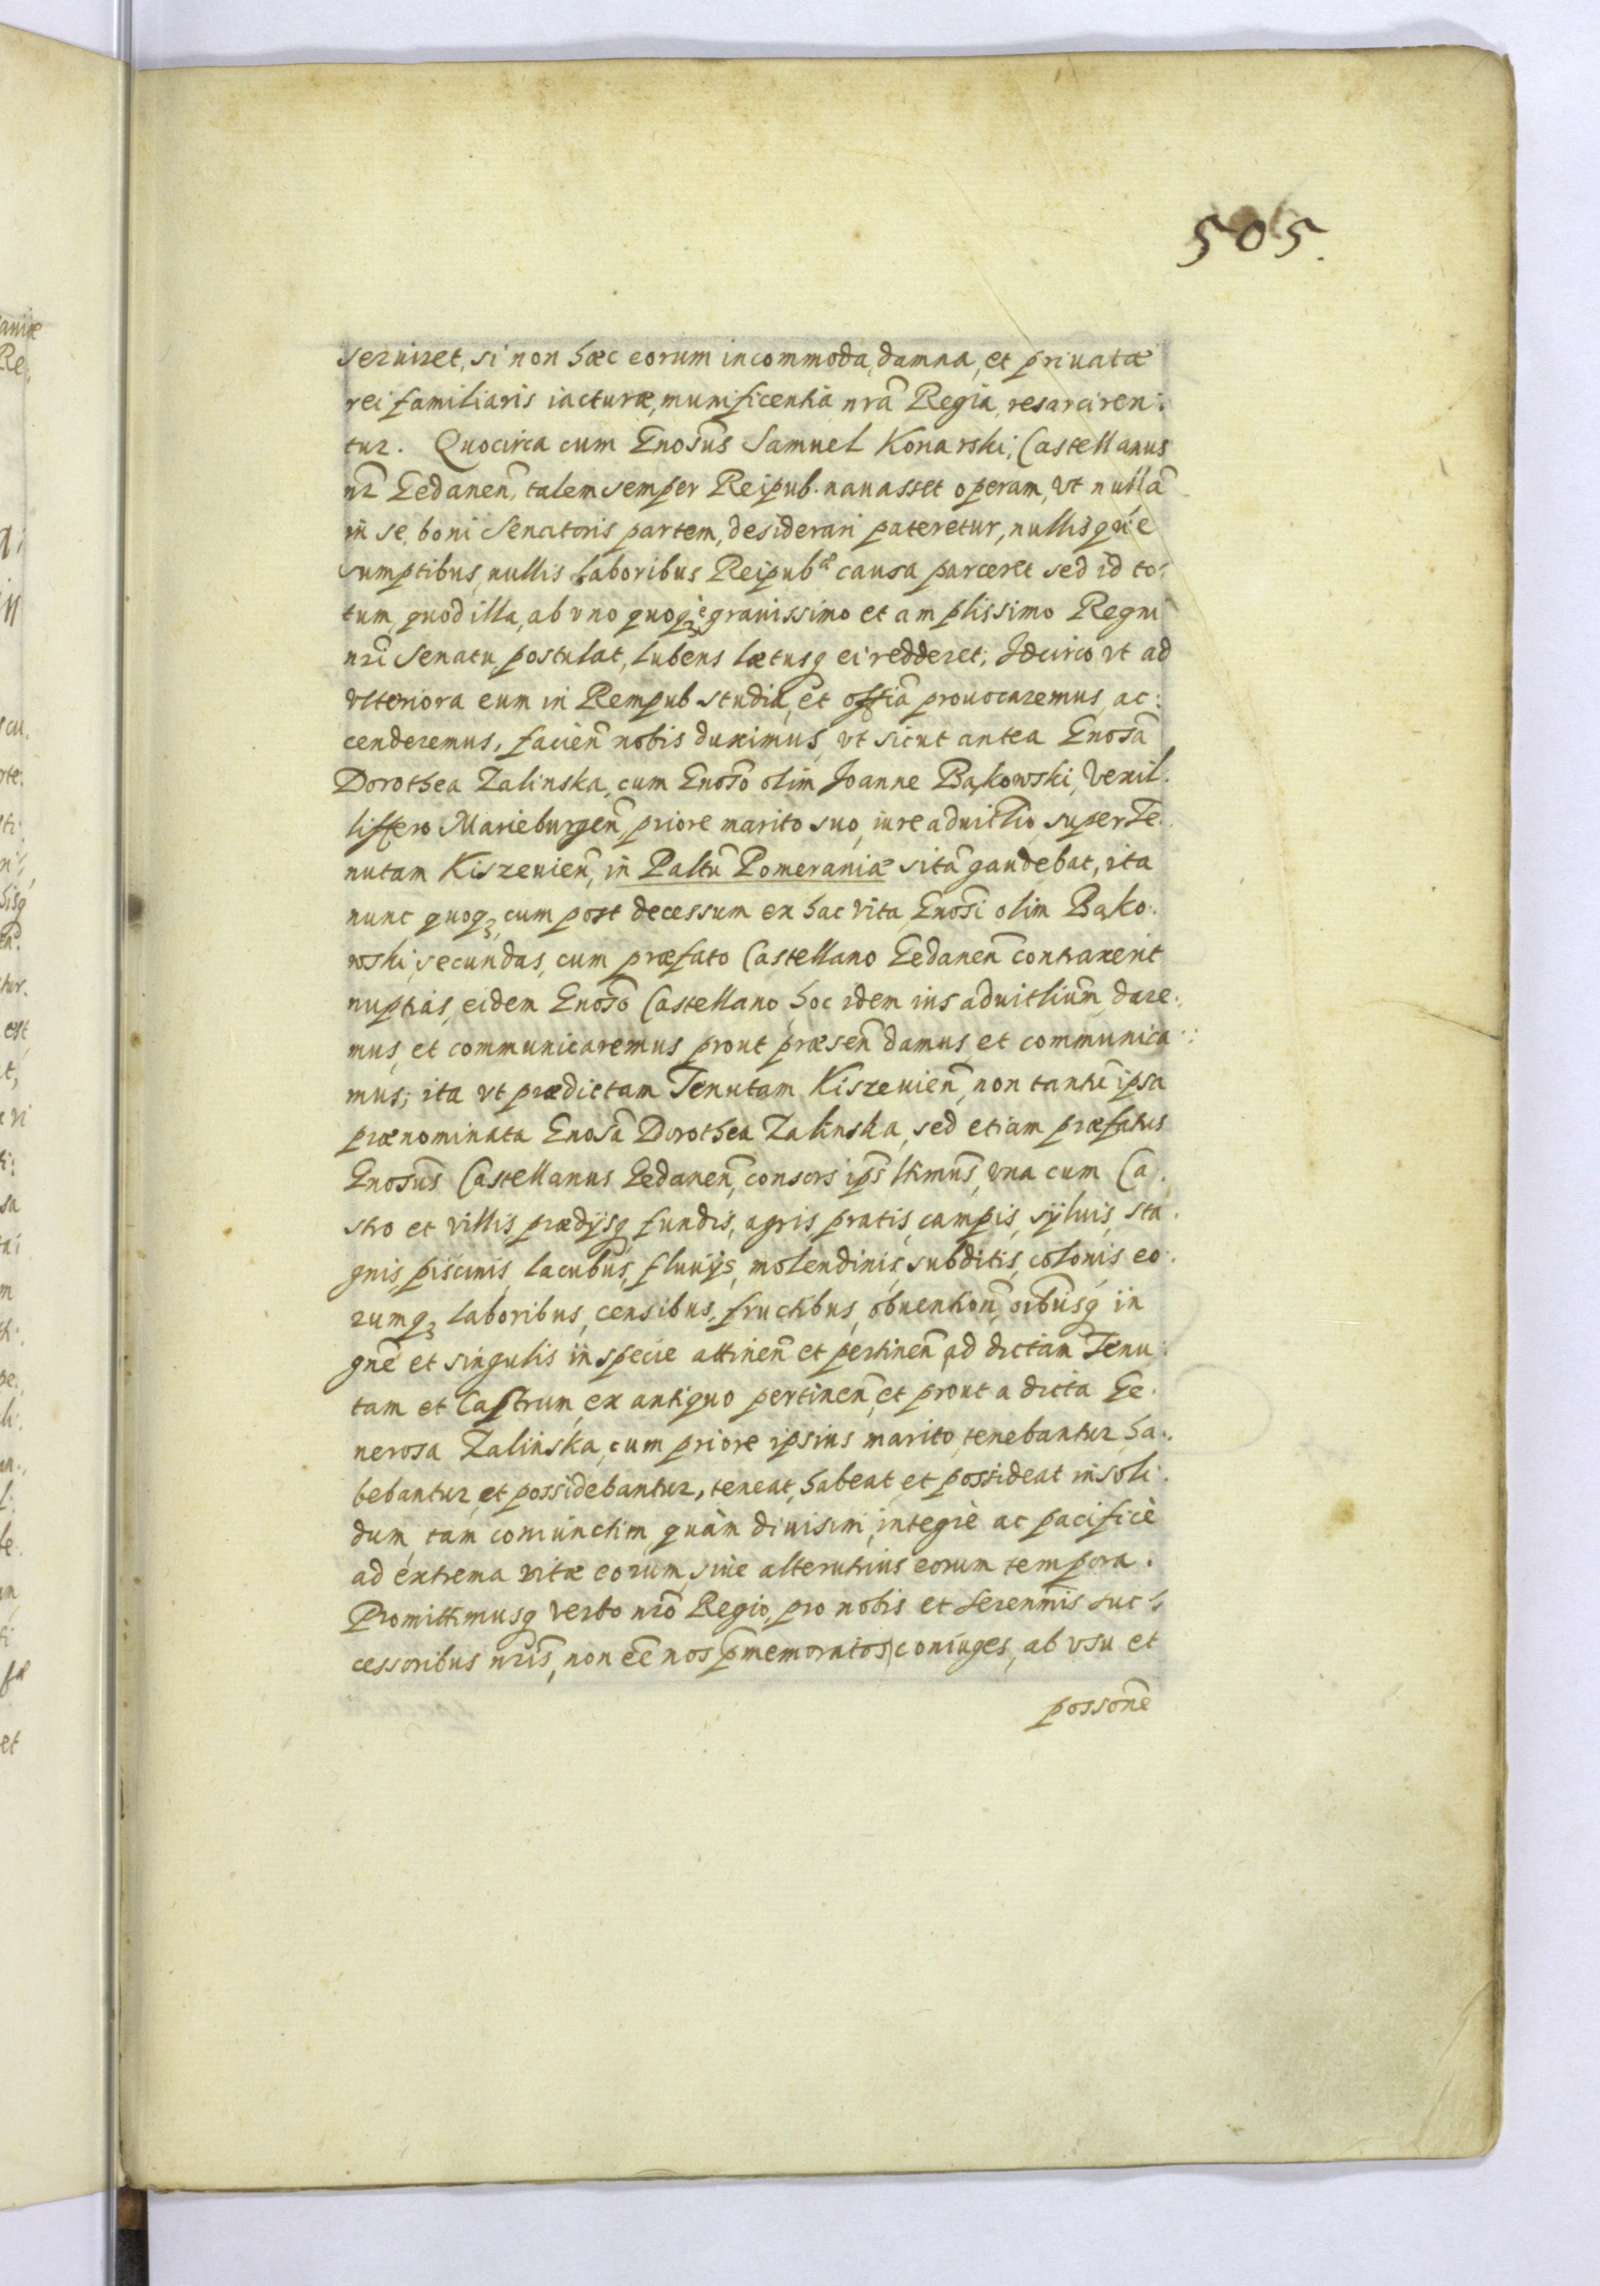 505.
seruiret, si non hæc eorum incommoda, damna, et priuatæ
rei familiaris iacturæ, munificentia nrã Regia, resarciren:
tur. Quocirca cum Gnosus Samuel Konarski, Castellanus
nr̃ Gedaneñ, talem semper Reipub. nauasset operam, vt nullã
in se, boni Senatoris partem, desiderari pateretur, nullisque
sumptibus, nullis laboribus Reipub^æ causa parceret sed id to:
tum, quod illa, ab vno quoqꝫ grauissimo et amplissimo Regni
nri Senatu, postulat, lubens lætusq ei redderet, Idcirco vt ad
vlteriora eum in Rempub studia, et offia prouocaremus, ac:
cenderemus, facieñ nobis duximus, vt sicut antea Gnosã
Dorothea Zalinska, cum Gnoso olim Joanne Bąkowski, Vexil:
liffero Marieburgeñ, priore marito suo, iure aduitlio super Te:
nutam Kiszeuieñ, in Paltũ Pomeraniæ sitã gaudebat, ita
nunc quoqꝫ, cum post decessum ex hac vita, Gnosi olim Bąko:
wski, secundas, cum præfato Castellano Gedaneñ contraxerit
nuptias, eidem Gnoso Castellano, hoc idem ius aduitlium, dare:
mus, et communicaremus prout præseñ damus, et communica:
mus; ita vt prædictam Tenutam Kiszeuieñ, non tantũ ipsa
prænominata Gnosã Dorothea Zalinska, sed etiam præfatus
Gnosus Castellanus Gedaneñ, consors ips̃ ltimus, vna cum Ca:
stro et villis prædijsq fundis, agris, pratis, campis, syluis, sta:
gnis, piscinis, lacubus, fluuijs, molendinis, subditis, colonis eo:
rumqꝫ laboribus, censibus, fructibus, obuentioñ, oibusq in
gnẽ et singulis in specie attineñ et pertineñ, ad dictam Tenu:
tam et Castrum, ex antiquo pertineñ, et prout a dicta Ge:
nerosa Zalinska, cum priore ipsius marito, tenebantur, ha:
bebantur, et possidebantur, teneat, habeat, et possideat in soli:
dum, tam coniunctim, quàm diuisim, integrè ac pacificè
ad extrema vitæ eorum, siue alterutrius eorum tempora.
Promittimusq verbo nro Regio, pro nobis et Serenmis suc:
cessoribus nris, non eẽ nos pmemoratos coniuges, ab vsu et
possone